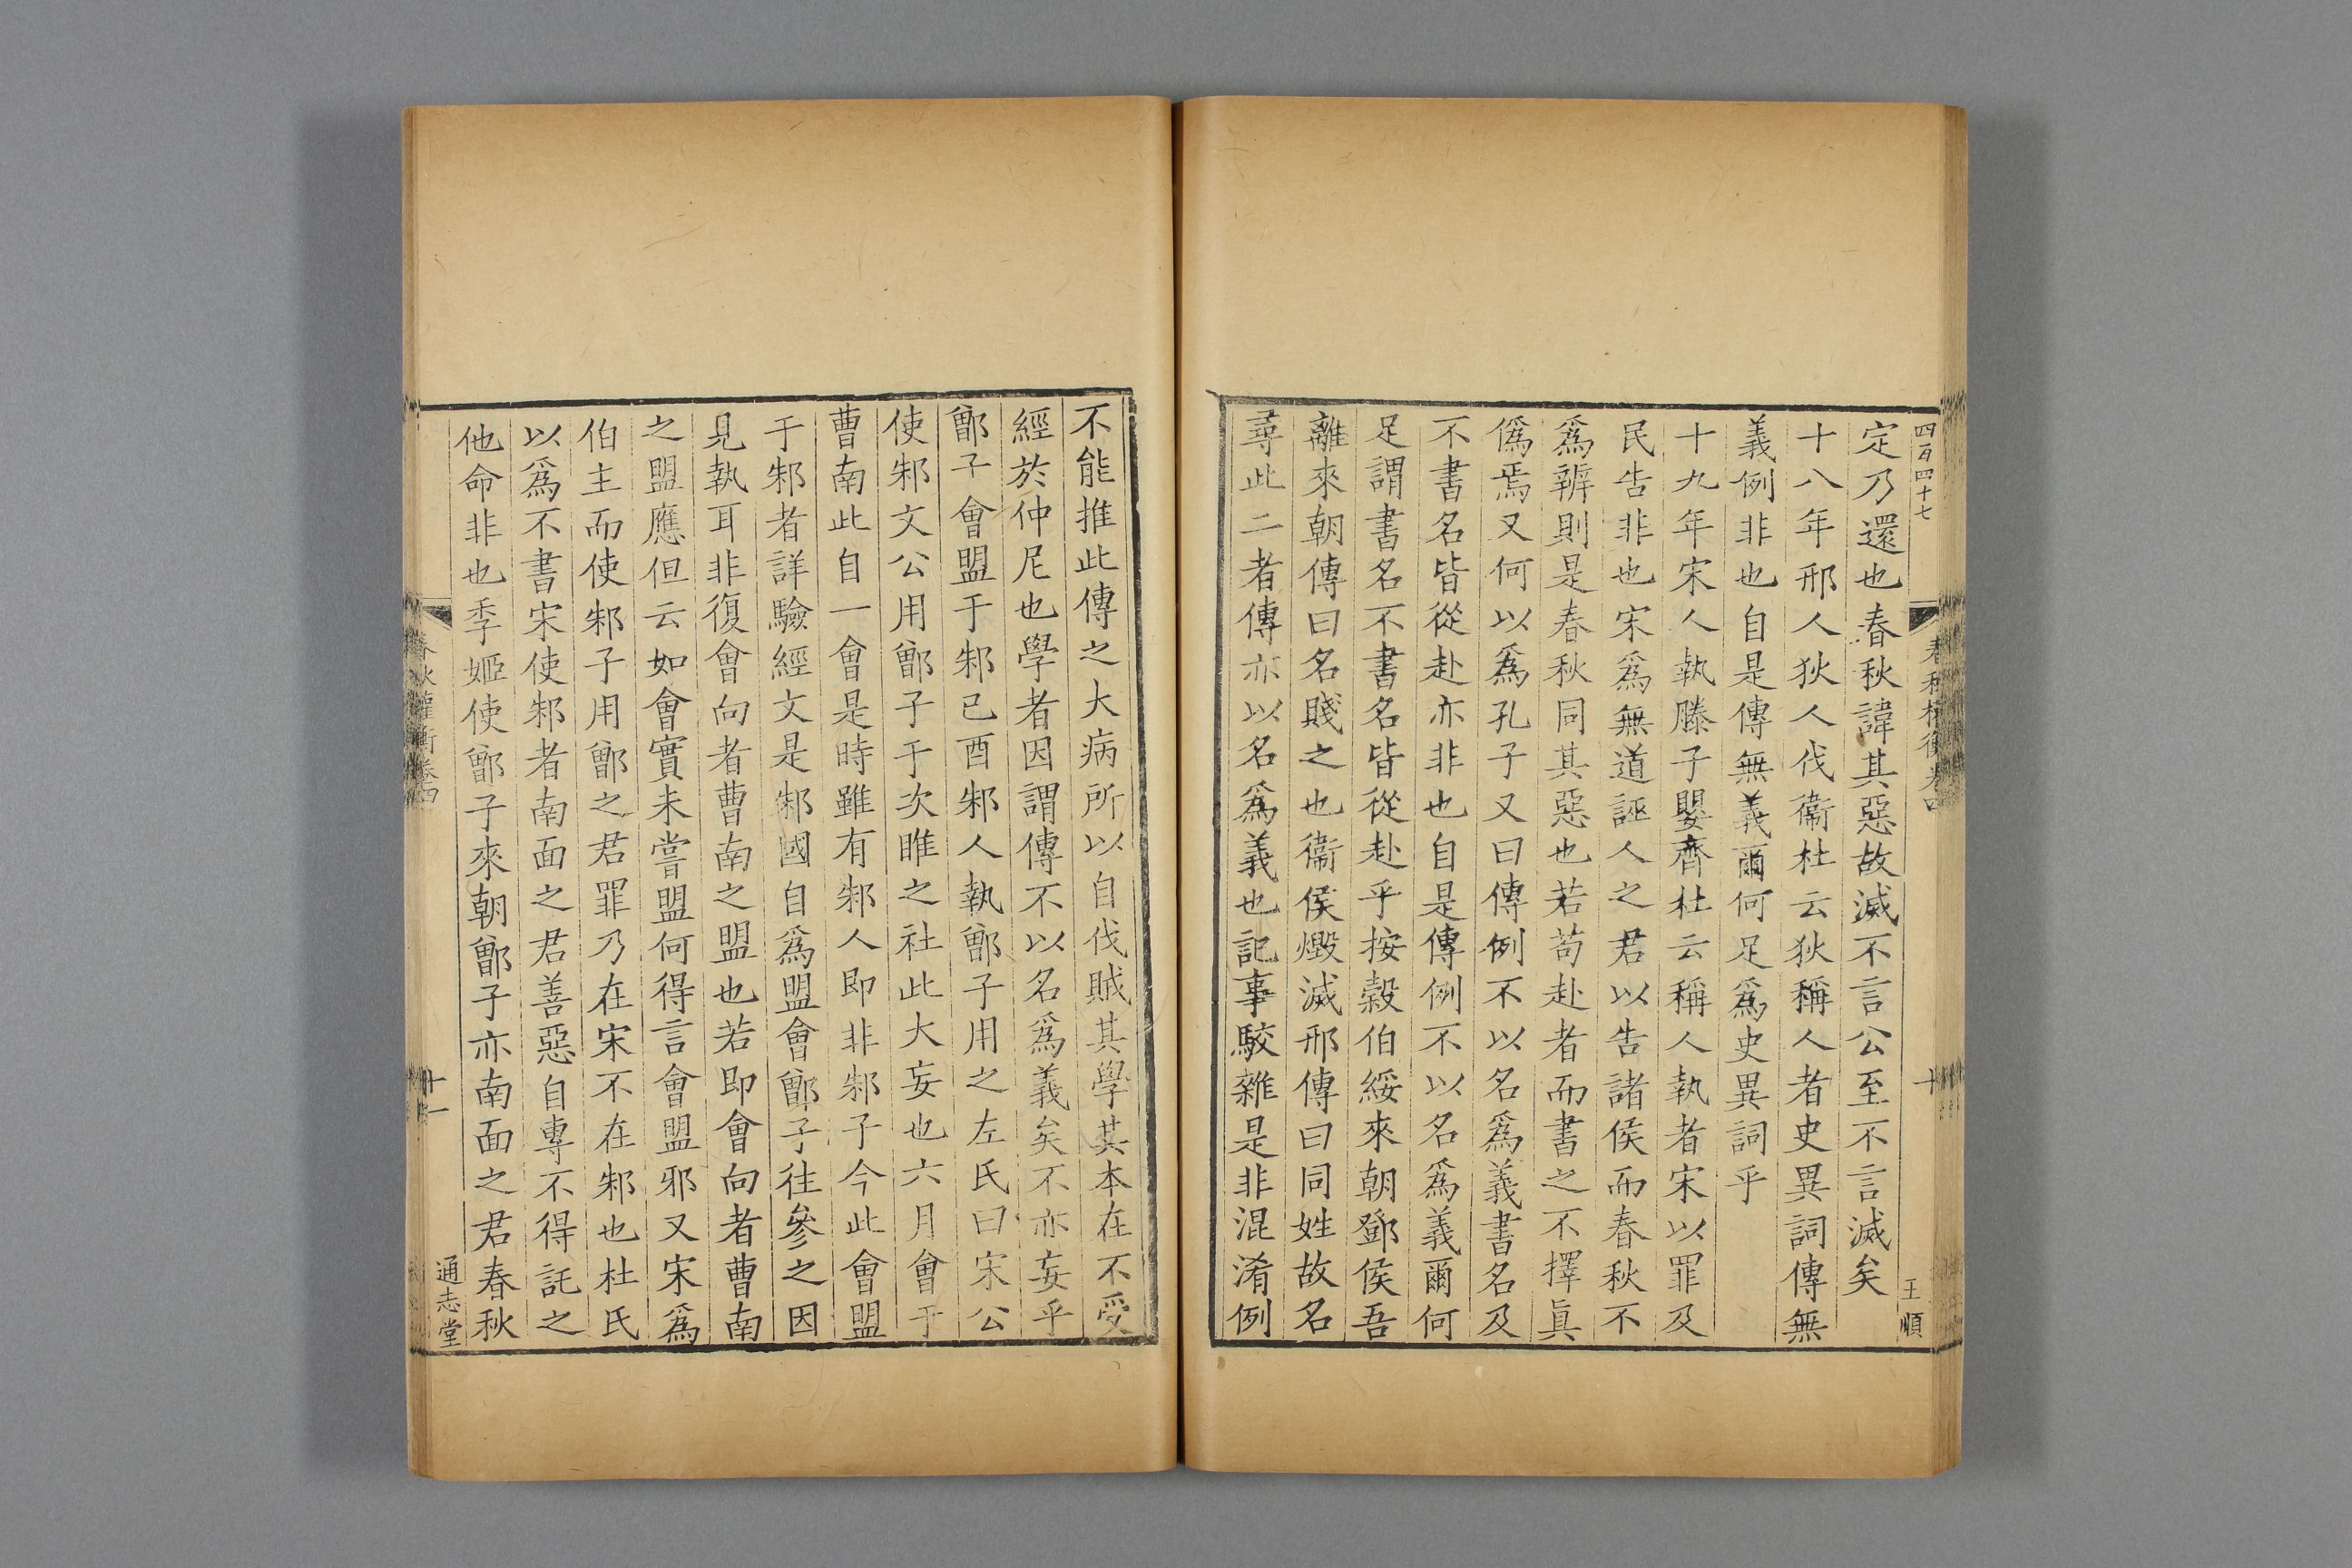 四百四十七
春秋權衡卷四
十
王順
定乃還也春秋諱其惡故滅不言公至不言滅矣
十八年邢人狄人伐衞杜云狄稱人者史異詞傳無
義例非也自是傳無義爾何足爲史異詞乎
十九年宋人執滕子嬰齊杜云稱人執者宋以罪及
民告非也宋爲無道誣人之君以告諸侯而春秋不
爲辨則是春秋同其惡也若苟赴者而書之不擇眞
僞焉又何以爲孔子又曰傳例不以名爲義書名及
不書名皆從赴亦非也自是傳例不以名爲義爾何
足謂書名不書名皆從赴乎按穀伯綏來朝鄧侯吾
離來朝傳曰名賤之也衞侯燬滅邢傳曰同姓故名
尋此二者傳亦以名爲義也記事駮雜是非混淆例
不能推此傳之大病所以自伐賊其學其本在不受
經於仲尼也學者因謂傳不以名爲義矣不亦妄乎
鄫子會盟于邾已酉邾人執鄫子用之左氏曰宋公
使邾文公用鄫子于次睢之社此大妄也六月會于
曹南此自一會是時雖有邾人即非邾子今此會盟
于邾者詳驗經文是邾國自爲盟會鄫子往參之因
見執耳非復會向者曹南之盟也若即會向者曹南
之盟應但云如會實未嘗盟何得言會盟邪又宋爲
伯主而使邾子用鄫之君罪乃在宋不在邾也杜氏
以爲不書宋使邾者南面之君善惡自專不得託之
他命非也季姬使鄫子來朝鄫子亦南面之君春秋
春秋權衡卷四
十一
通志堂